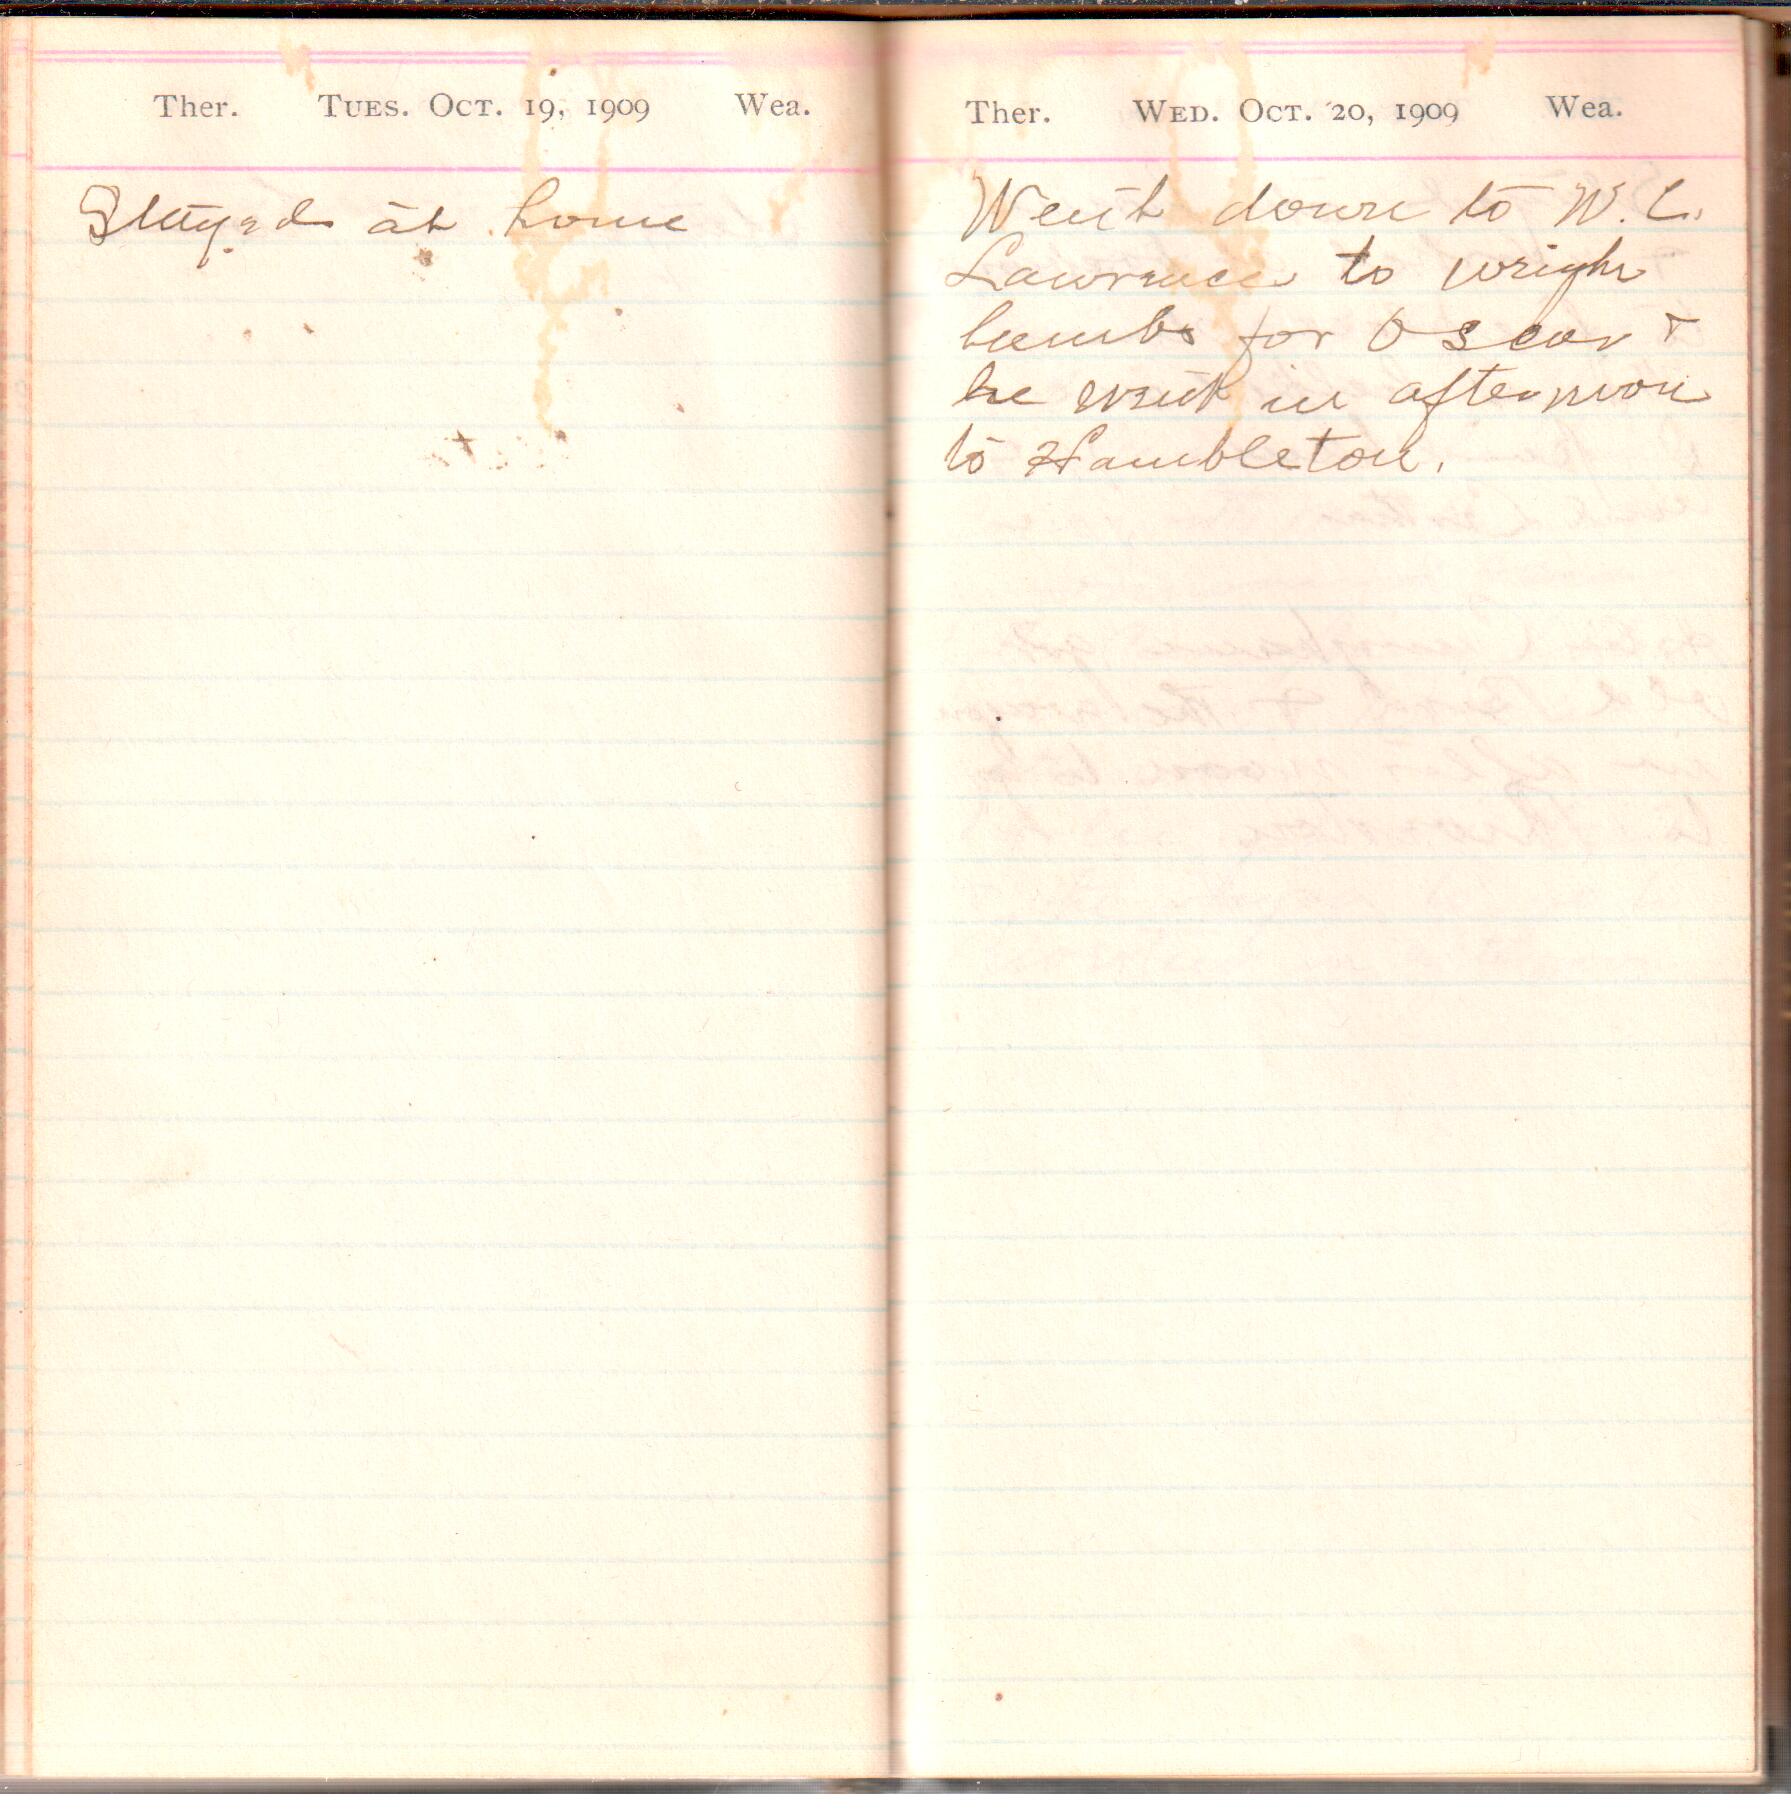 Ther. Tues. Oct. 19, 1909 Wea.
Stayed at home
Ther. Wed. Oct. 20, 1909 Wea.
Went down to W. L.
Lawrence to weigh
lambs for Oscar &
he went in afternoon
to Hambleton.